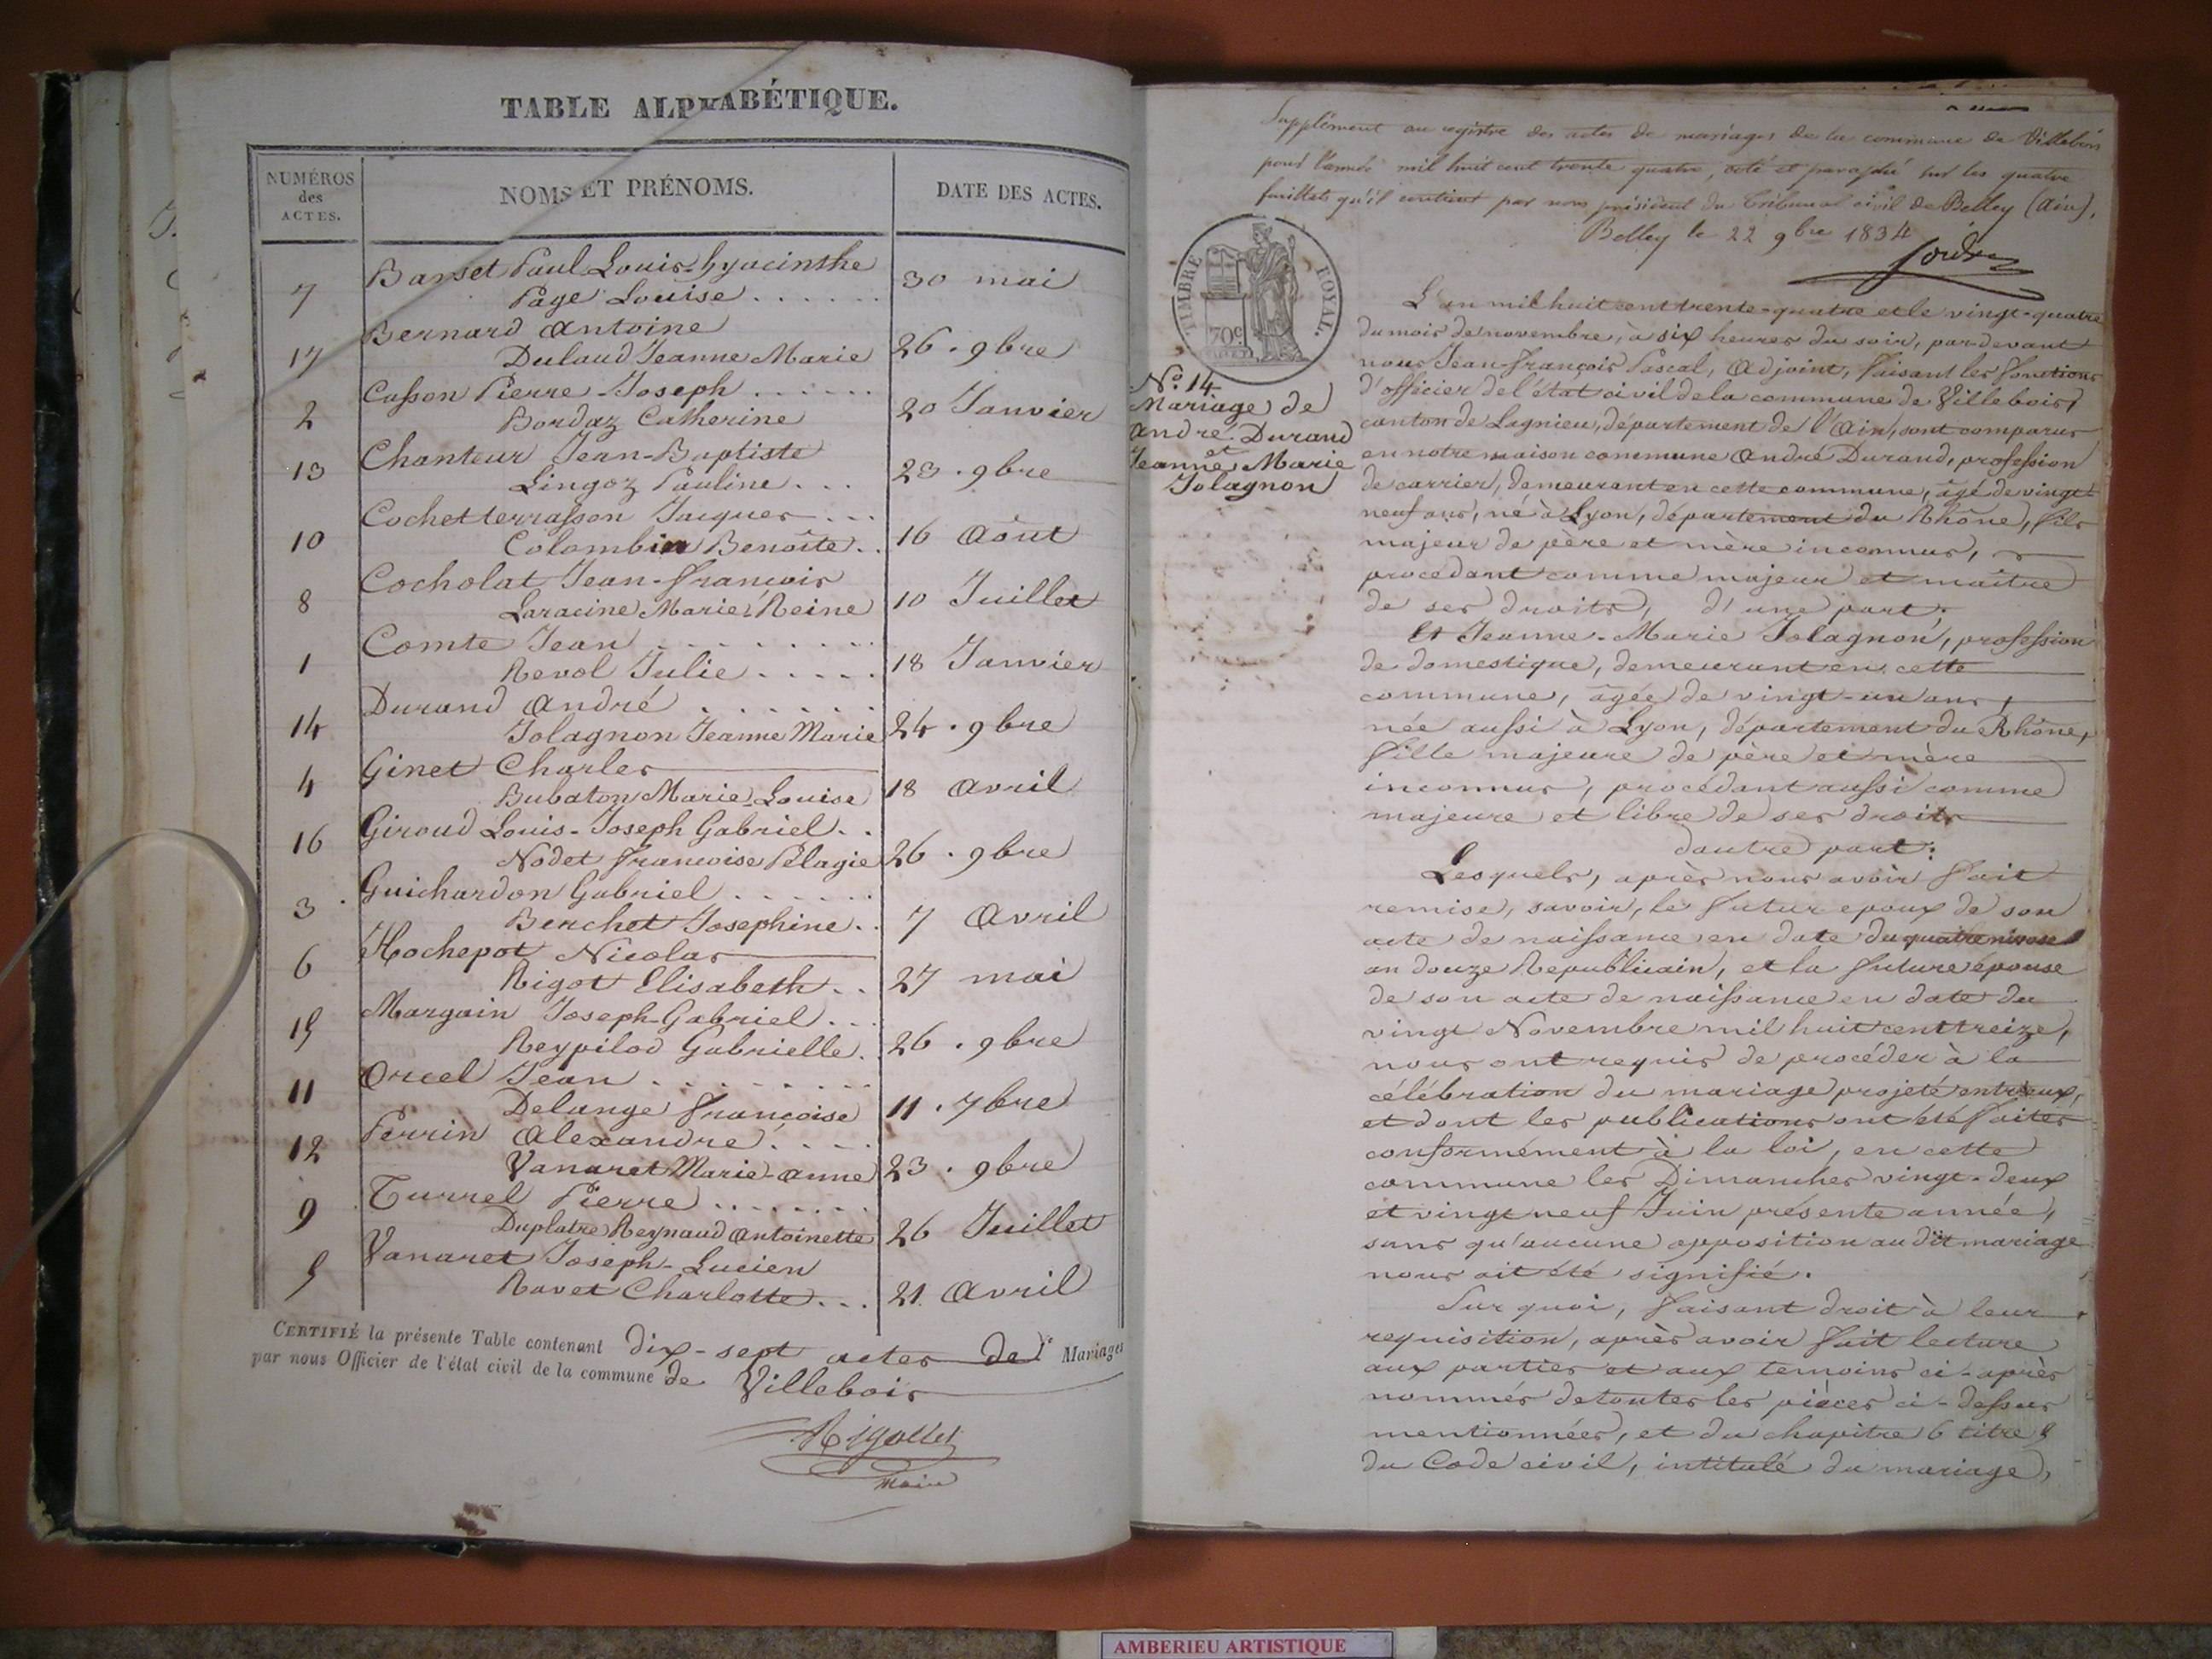 TABLE ALPHABÉTIQUE.
NUMÉROS
des
ACTES.
NOMS ET PRÉNOMS.
DATE DES ACTES.
7 Banset Paul Louis-hyacinthe
Page Louise . . . . . . 30 mai
17 Bernard Antoine
Dulaud Jeanne Marie 26 . 9bre
2 Casson Pierre-Joseph . . . . . .
Bordaz Catherine 20 Janvier
13 Chanteur Jean-Baptiste
Lingoz Pauline . . . 23 . 9bre
10 Cochetterrasson Jacques . . .
Colombin Benoîte . . 16 Août
8 Cocholat Jean-françois
Laracine Marie Reine 10 Juillet
1 Comte Jean . . . . . . . .
Revol Julie . . . . . 18 Janvier
14 Durand André . . . . . .
Jolagnon Jeanne Marie 24 . 9bre
4 Ginet Charles
Bubaton Marie-Louise 18 Avril
16 Giroud Louis-Joseph Gabriel . .
Nodet francoise Pélagie 26 . 9bre
3 Guichardon Gabriel . . . . . .
Berchet Josephine . . 7 Avril
6 Hochepot Nicolas
Rigot Elisabeth . . 27 mai
15 Margain Joseph-Gabriel . . .
Reypilod Gabrielle . 26 . 9bre
11 Orcel Jean . . . . . . . .
Delange françoise 11 . 7bre
12 Perrin Alexandre . . . .
Vanaret Marie-Anne 23 . 9bre
9 Turrel Pierre . . . . . . .
Duplatre Reynaud Antoinette 26 Juillet
5 Vanaret Joseph-Lucien
Ravet Charlotte . . . 21 Avril
CERTIFIÉ la présente Table contenant dix-sept actes de Mariages
par nous Officier de l'état civil de la commune de Villebois
Rigollet
Maire
Supplément au registre des actes de mariages de la commune de Villebois
pour l'année mil huit cent trente quatre, coté et paraphé sur les quatre
feuillets qu'il contient par nous président du Tribunal civil de Belley (Ain),
Belley le 22 9bre 1834
TIMBRE ROYAL.
70c
No. 14
Mariage de
André Durand
et
Jeanne Marie
Jolagnon
L'an mil huit cent trente-quatre et le vingt-quatre
du mois de novembre, à six heures du soir, par-devant
nous Jean-françois Pascal, Adjoint, faisant les fonctions
d'officier de l'état civil de la commune de Villebois,
canton de Lagnieu, département de l'Ain, sont comparus
en notre maison commune André Durand, profession
de carrier, demeurant en cette commune, âgé de vingt
neuf ans, né à Lyon, département du Rhône, fils
majeur de père et mère inconnus,
procédant comme majeur et maître
de ses droits, d'une part,
Et Jeanne-Marie Jolagnon, profession
de domestique, demeurant en cette
commune, âgée de vingt-un ans,
née aussi à Lyon, département du Rhône,
fille majeure de père et mère
inconnus, procédant aussi comme
majeure et libre de ses droits
dautre part:
Lesquels, après nous avoir fait
remise, savoir, le futur epoux de son
acte de naissance en date du quatre nivose
an douze Republicain, et la future épouse
de son acte de naissance en date du
vingt Novembre mil huit cent treize,
nous ont requis de procéder à la
célébration du mariage projeté entr'eux,
et dont les publications ont été faites
conformément à la loi, en cette
commune les Dimanches vingt-deux
et vingt neuf Juin présente année,
sans qu'aucune opposition au dit mariage
nous ait été signifié.
Sur quoi, faisant droit à leur
requisition, après avoir fait lecture
aux parties et aux temoins ci-après
nommés de toutes les pièces ci-dessus
mentionnées, et du chapitre 6 titre 5
du Code civil, intitulé du mariage,
AMBERIEU ARTISTIQUE